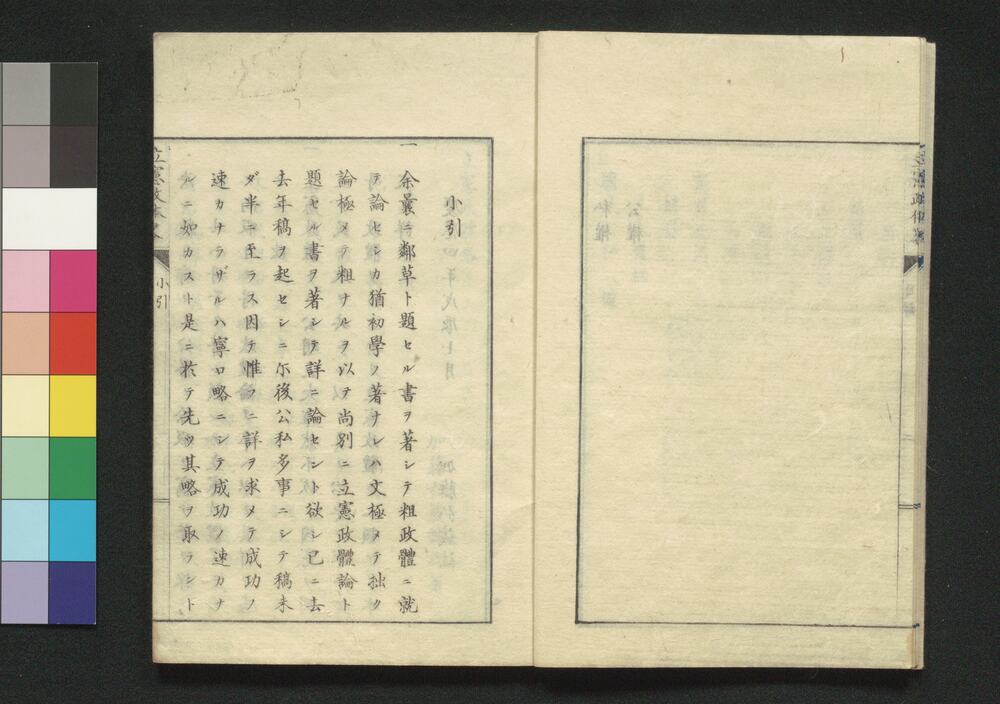 小引
一 余曩ニ鄰草ト題セル書ヲ著シテ粗政體ニ就
テ論セシカ猶初學ノ著ナレハ文極メテ拙ク
論極メテ粗ナルヲ以テ尚別ニ立憲政體論ト
題セル書ヲ著シテ詳ニ論セント欲シ已ニ去
去年稿ヲ起セシニ尓後公私多事ニシテ稿未
ダ半ニ至ラス因テ惟フニ詳ヲ求メテ成功ノ
速カナラザルハ寧ロ略ニシテ成功ノ速カナ
ルニ如カスト是ニ於テ先ツ其略ヲ取ラント
立憲政體畧
小引